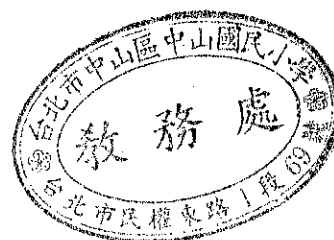 台北市中山區中山國民小學
教務處
台北市民權東路1段69